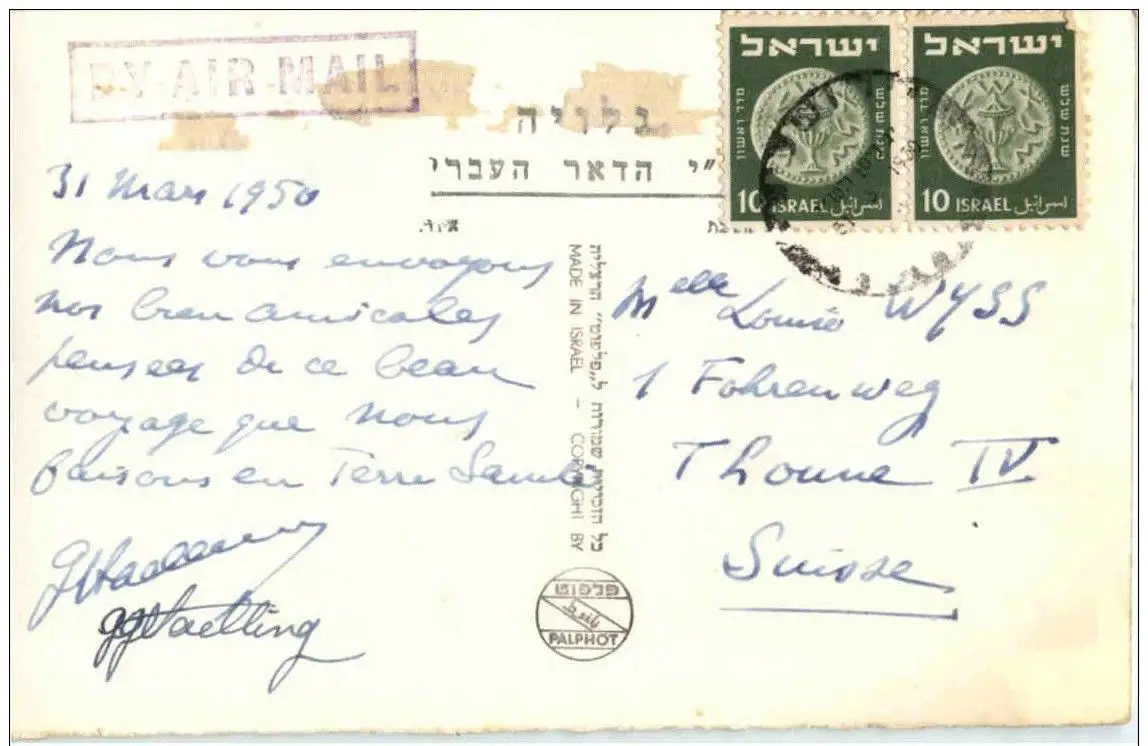 BY AIR MAIL
גלויה
"י הדאר העברי
ישראל
10 ISRAEL اسرائيل
ישראל
10 ISRAEL اسرائيل
31 Mars 1950
Nous vous envoyons
nos bien amicales
pensées de ce beau
voyage que nous
faisons en Terre Sainte
Melle Louise WYSS
1 Fohrenweg
Thoune IV
Suisse
כל הזכויות שמורות ל"פלפוט" הרצליה
MADE IN ISRAEL - COPYRIGHT BY
פלפוט
PALPHOT